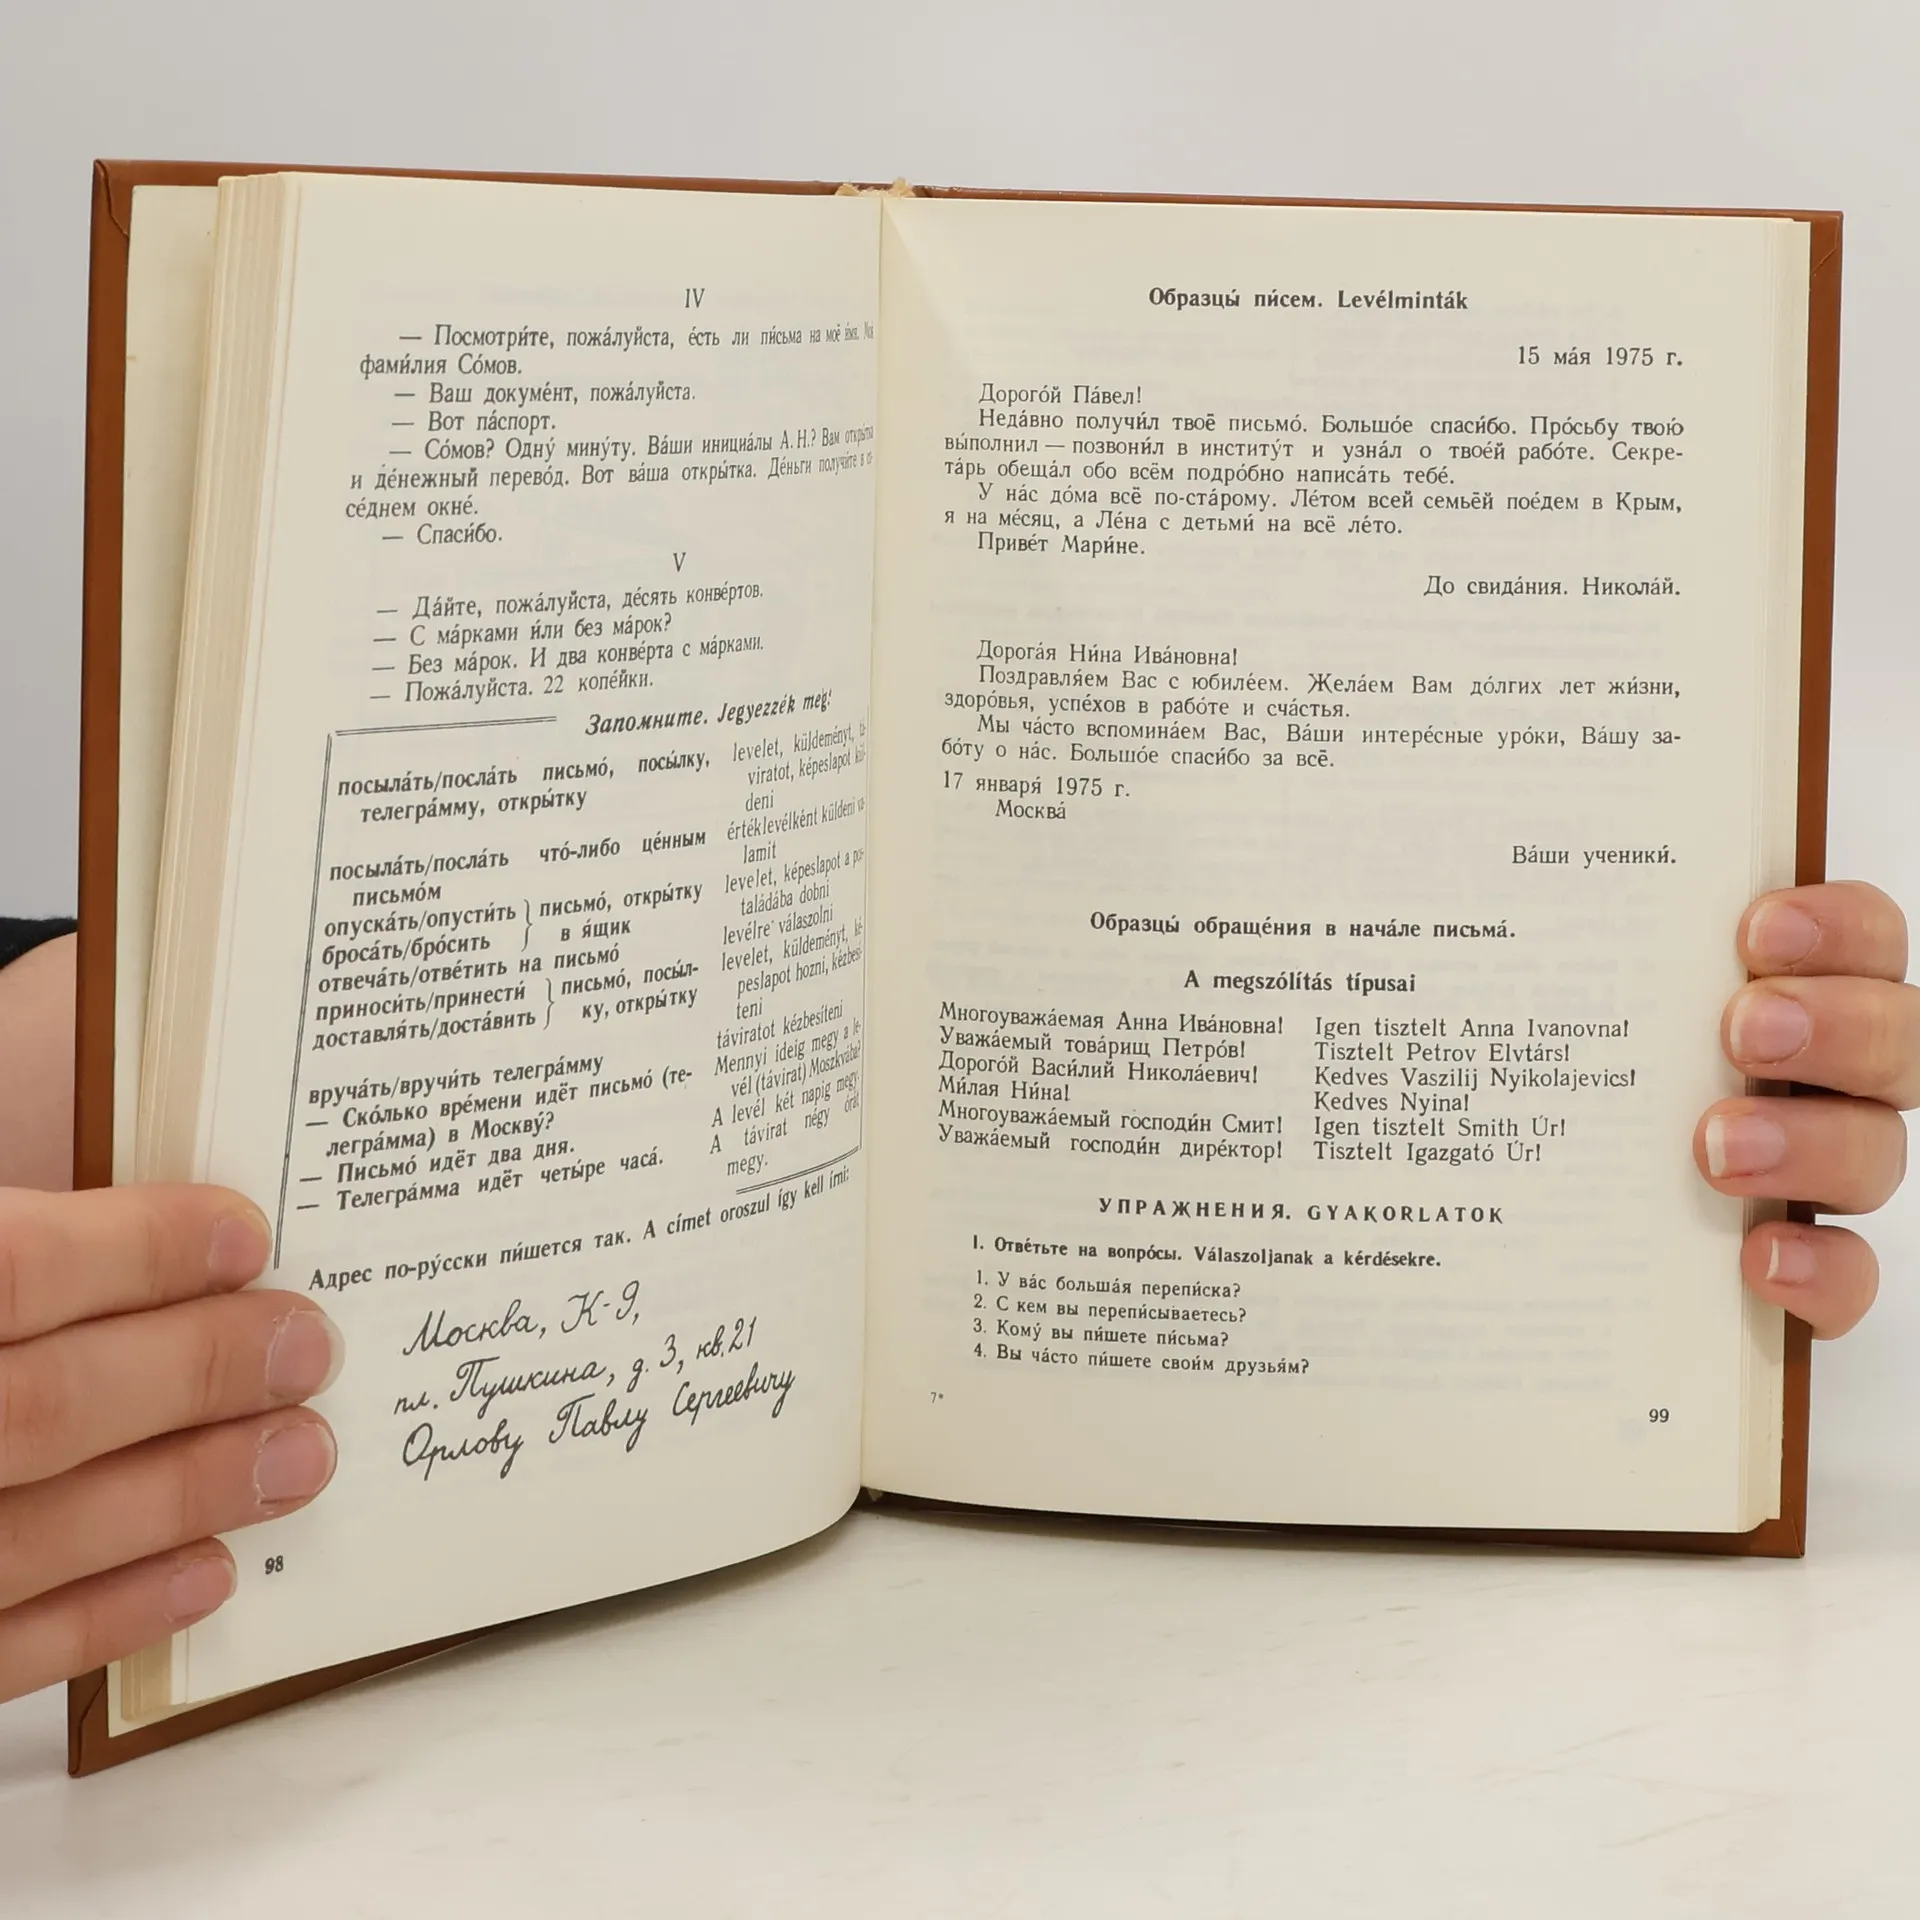 IV
— Посмотри́те, пожа́луйста, е́сть ли пи́сьма на моё и́мя. Моя
фами́лия Со́мов.
— Ваш докуме́нт, пожа́луйста.
— Вот па́спорт.
— Со́мов? Одну́ мину́ту. Ва́ши инициа́лы А. Н.? Вам откры́тка
и де́нежный перево́д. Вот ва́ша откры́тка. Де́ньги получи́те в со-
се́днем окне́.
— Спаси́бо.
V
— Да́йте, пожа́луйста, де́сять конве́ртов.
— С ма́рками и́ли без ма́рок?
— Без ма́рок. И два конве́рта с ма́рками.
— Пожа́луйста. 22 копе́йки.
Запомните. Jegyezzék meg!
посыла́ть/посла́ть письмо́, посы́лку, levelet, küldeményt, tá-
телегра́мму, откры́тку viratot, képeslapot kül-
deni
посыла́ть/посла́ть что́-либо це́нным értéklevélként küldeni va-
письмо́м lamit
опуска́ть/опусти́ть } письмо́, откры́тку levelet, képeslapot a pos-
броса́ть/бро́сить в я́щик taládába dobni
отвеча́ть/отве́тить на письмо́ levélre válaszolni
приноси́ть/принести́ } письмо́, посы́л- levelet, küldeményt, ké-
доставля́ть/доста́вить ку, откры́тку peslapot hozni, kézbesí-
teni
вруча́ть/вручи́ть телегра́мму táviratot kézbesíteni
— Ско́лько вре́мени идёт письмо́ (те- Mennyi ideig megy a le-
легра́мма) в Москву́? vél (távirat) Moszkvába?
— Письмо́ идёт два дня. A levél két napig megy.
— Телегра́мма идёт четы́ре часа́. A távirat négy órát
megy.
Адрес по-ру́сски пи́шется так. A címet oroszul így kell írni:
Москва, К-9,
пл. Пушкина, д. 3, кв. 21
Орлову Павлу Сергеевичу
98
Образцы́ пи́сем. Levélminták
15 ма́я 1975 г.
Дорого́й Па́вел!
Неда́вно получи́л твоё письмо́. Большо́е спаси́бо. Про́сьбу твою́
вы́полнил — позвони́л в институ́т и узна́л о твое́й рабо́те. Секре-
та́рь обеща́л обо всём подро́бно написа́ть тебе́.
У на́с до́ма всё по-ста́рому. Ле́том всей семьёй пое́дем в Крым,
я на ме́сяц, а Ле́на с детьми́ на всё ле́то.
Приве́т Мари́не.
До свида́ния. Никола́й.
Дорога́я Ни́на Ива́новна!
Поздравля́ем Вас с юбиле́ем. Жела́ем Вам до́лгих лет жи́зни,
здоро́вья, успе́хов в рабо́те и сча́стья.
Мы ча́сто вспомина́ем Вас, Ва́ши интере́сные уро́ки, Ва́шу за-
бо́ту о на́с. Большо́е спаси́бо за всё.
17 января́ 1975 г.
Москва́
Ва́ши ученики́.
Образцы́ обраще́ния в нача́ле письма́.
A megszólítás típusai
Многоуважа́емая Анна Ива́новна! Igen tisztelt Anna Ivanovna!
Уважа́емый това́рищ Петро́в! Tisztelt Petrov Elvtárs!
Дорого́й Васи́лий Никола́евич! Kedves Vaszilij Nyikolajevics!
Ми́лая Ни́на! Kedves Nyina!
Многоуважа́емый господи́н Смит! Igen tisztelt Smith Úr!
Уважа́емый господи́н дире́ктор! Tisztelt Igazgató Úr!
УПРАЖНЕНИЯ. GYAKORLATOK
I. Отве́тьте на вопро́сы. Válaszoljanak a kérdésekre.
1. У ва́с больша́я перепи́ска?
2. С кем вы перепи́сываетесь?
3. Кому́ вы пи́шете пи́сьма?
4. Вы ча́сто пи́шете свои́м друзья́м?
7*
99